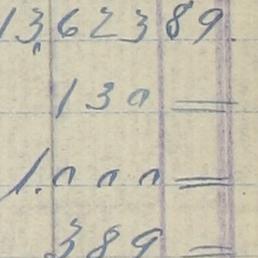 13,623 89
130 =
1.000 =
389 =